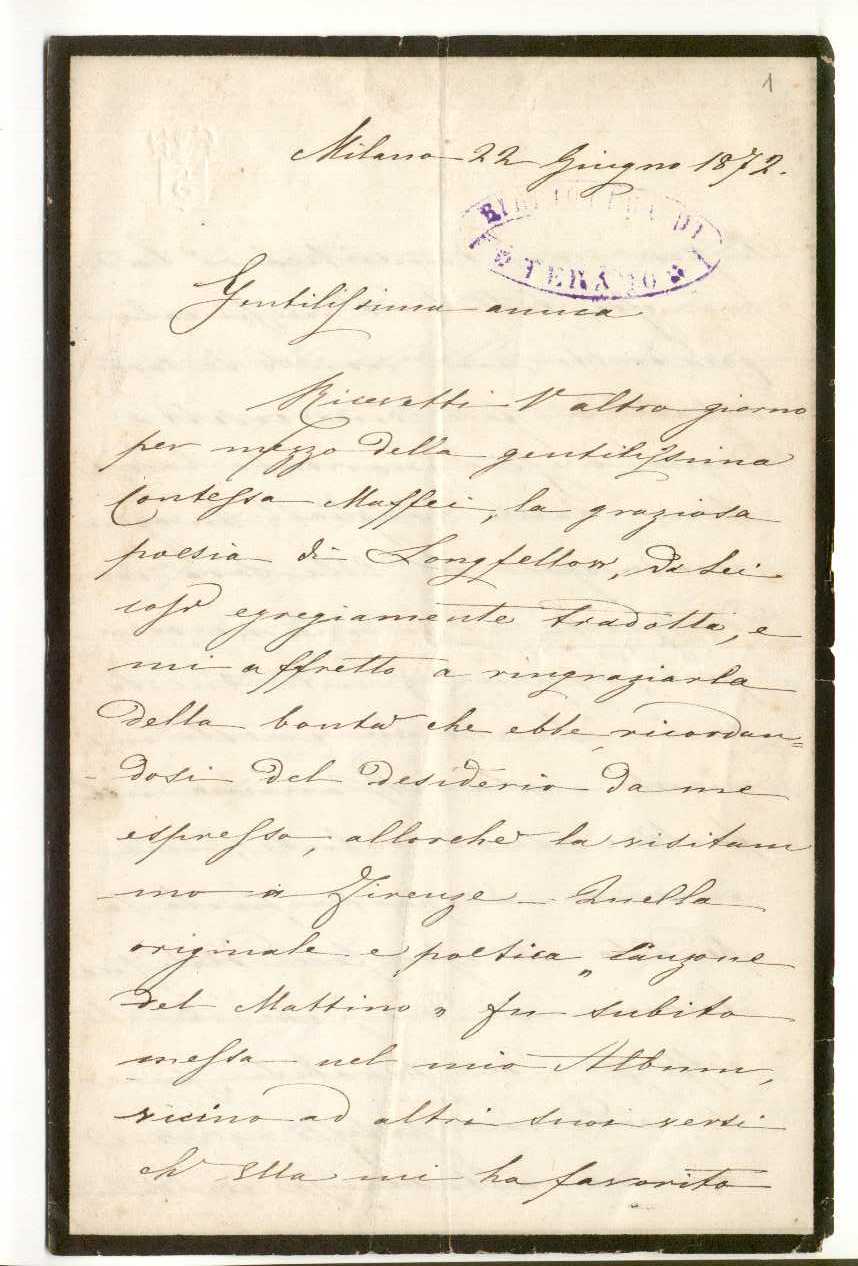 1
Milano 22 Giugno 1872.
BIBLIOTECA DI
TERAMO
Gentilissima amica
Ricevetti l'altro giorno
per mezzo della gentilissima
Contessa Maffei, la graziosa
poesia di Longfellow, da Lei
così egregiamente tradotta, e
mi affretto a ringraziarla
della bontà che ebbe, ricordan=
dosi del desiderio da me
espresso, allorchè la visitam
mo a Firenze _ Quella
originale e poetica „ Canzone
del Mattino „ fu subito
messa nel mio Album,
vicino ad altri suoi versi
ch'Ella mi ha favorito